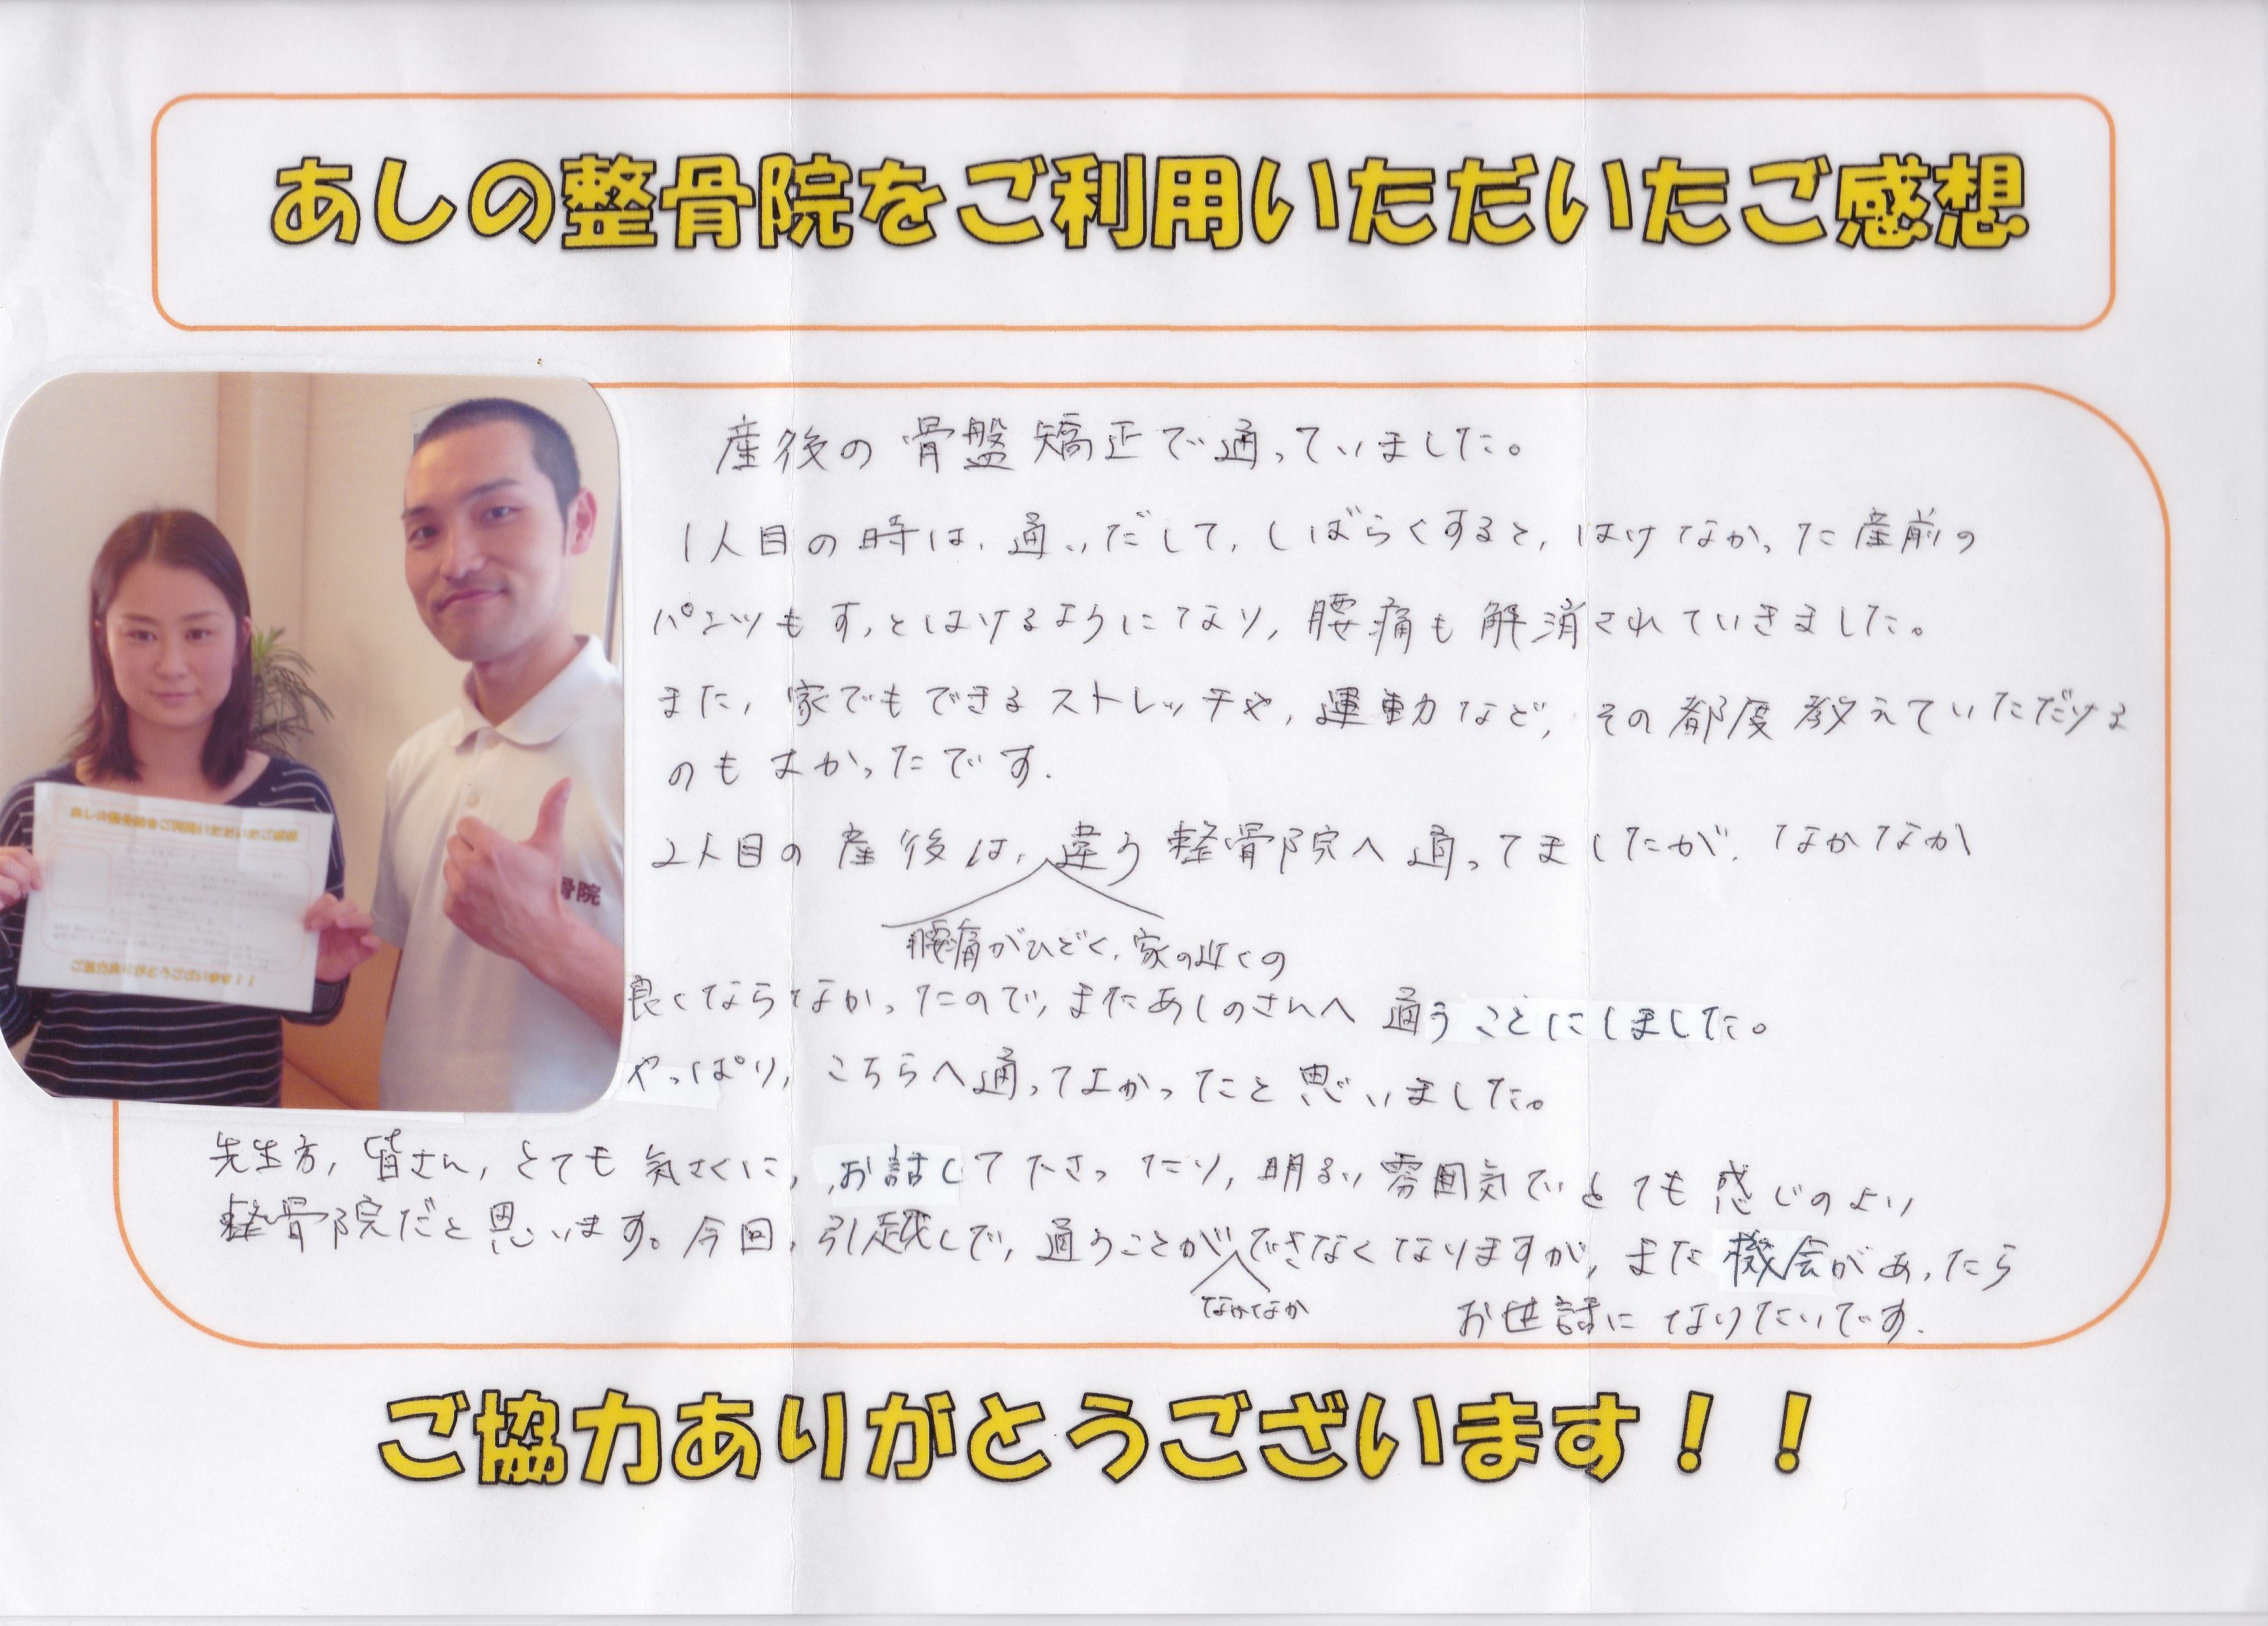 あしの整骨院をご利用いただいたご感想
産後の骨盤矯正で通っていました。
1人目の時は、通いだして、しばらくすると、はけなかった産前の
パンツもすっとはけるようになり、腰痛も解消されていきました。
また、家でもできるストレッチや、運動など、その都度教えていただける
のもよかったです。
2人目の産後は、違う整骨院へ通ってましたが、なかなか
腰痛がひどく、家の近くの
良くならなかったので、またあしのさんへ通うことにしました。
やっぱり、こちらへ通ってよかったと思いました。
先生方、皆さん、とても気さくに、お話して下さったり、明るい雰囲気でとても感じのよい
整骨院だと思います。今回、引越しで、通うことができなくなりますが、また機会があったら
なかなか
お世話になりたいです。
ご協力ありがとうございます！！
骨院
あしの整骨院をご利用いただいたご感想
ご協力ありがとうございます！！